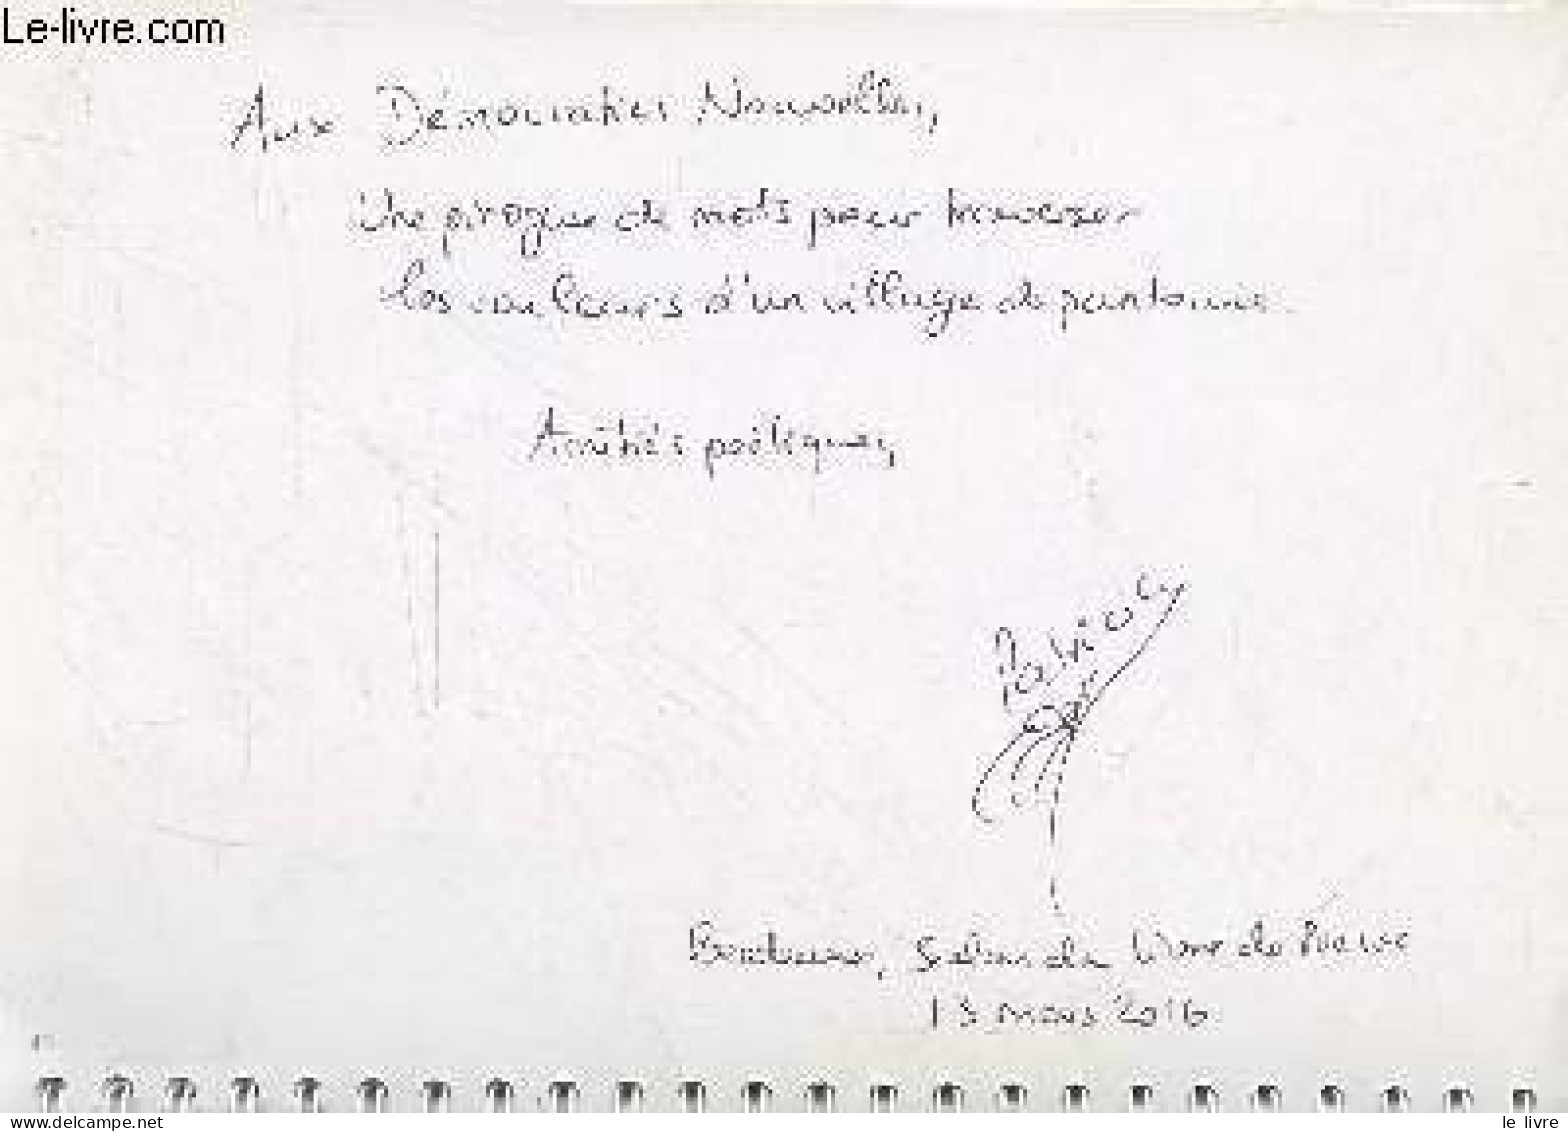 Le-livre.com
Aux Démocraties Nouvelles,
Une pirogue de mots pour traverser
les couleurs d'un village de pantomime.
Amitiés poétiques,
Patricia
Bordeaux, Salon du Livre de
13 mars 2016
www.delcampe.net
le livre